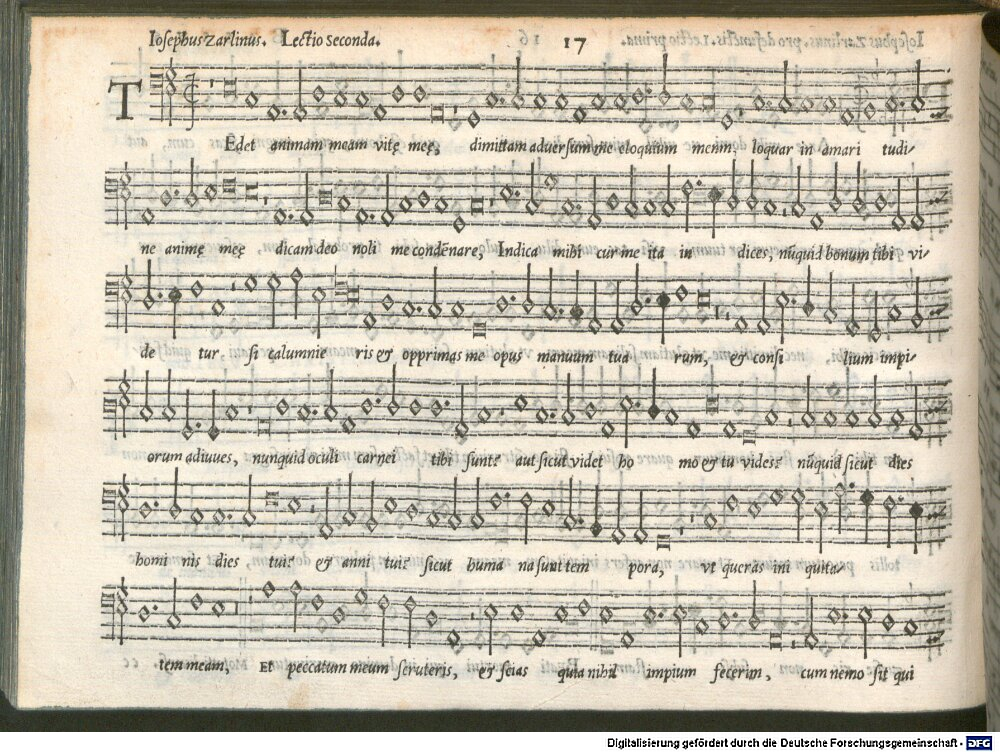 Iosephus Zarlinus. Lectio seconda. 17
TEdet animam meam vitę meę, dimittam aduersum me eloquium meum, loquar in amari tudi-
ne animę meę dicam deo noli me condēnare, Indica mihi cur me ita in dices, nūquid bonum tibi vi-
de tur si calumnie ris & opprimas me opus manuum tua rum, & consi lium impi-
orum adiuues, nunquid oculi carnei tibi sunt? aut sicut videt ho mo & tu vides? nūquid sicut dies
homi nis dies tui? & anni tui? sicut huma na sunt tem pora, vt queras ini quita-
tem meam, Et peccatum meum scruteris, & scias quia nihil impium fecerim, cum nemo sit qui
Digitalisierung gefördert durch die Deutsche Forschungsgemeinschaft - DFG